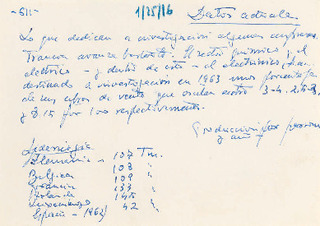 -511-
1/25/16
Datos actuales
Lo que dedican a investigación algunas empresas
Francia avanza bastante. El sector químico, el
eléctrico - y dentro de éste - el electrónico, han
destinado a investigación en 1963 unos porcentajes
de sus cifras de venta que oscilan entre 3-4, 2,5-3,
y 8-15 por 100 respectivamente.
Producción por persona
y año
Siderurgia
Alemania = 107 Tm.
Bélgica 108 "
Francia 109 "
Holanda 133 "
Luxemburgo 145 "
España - 1962) 42 "